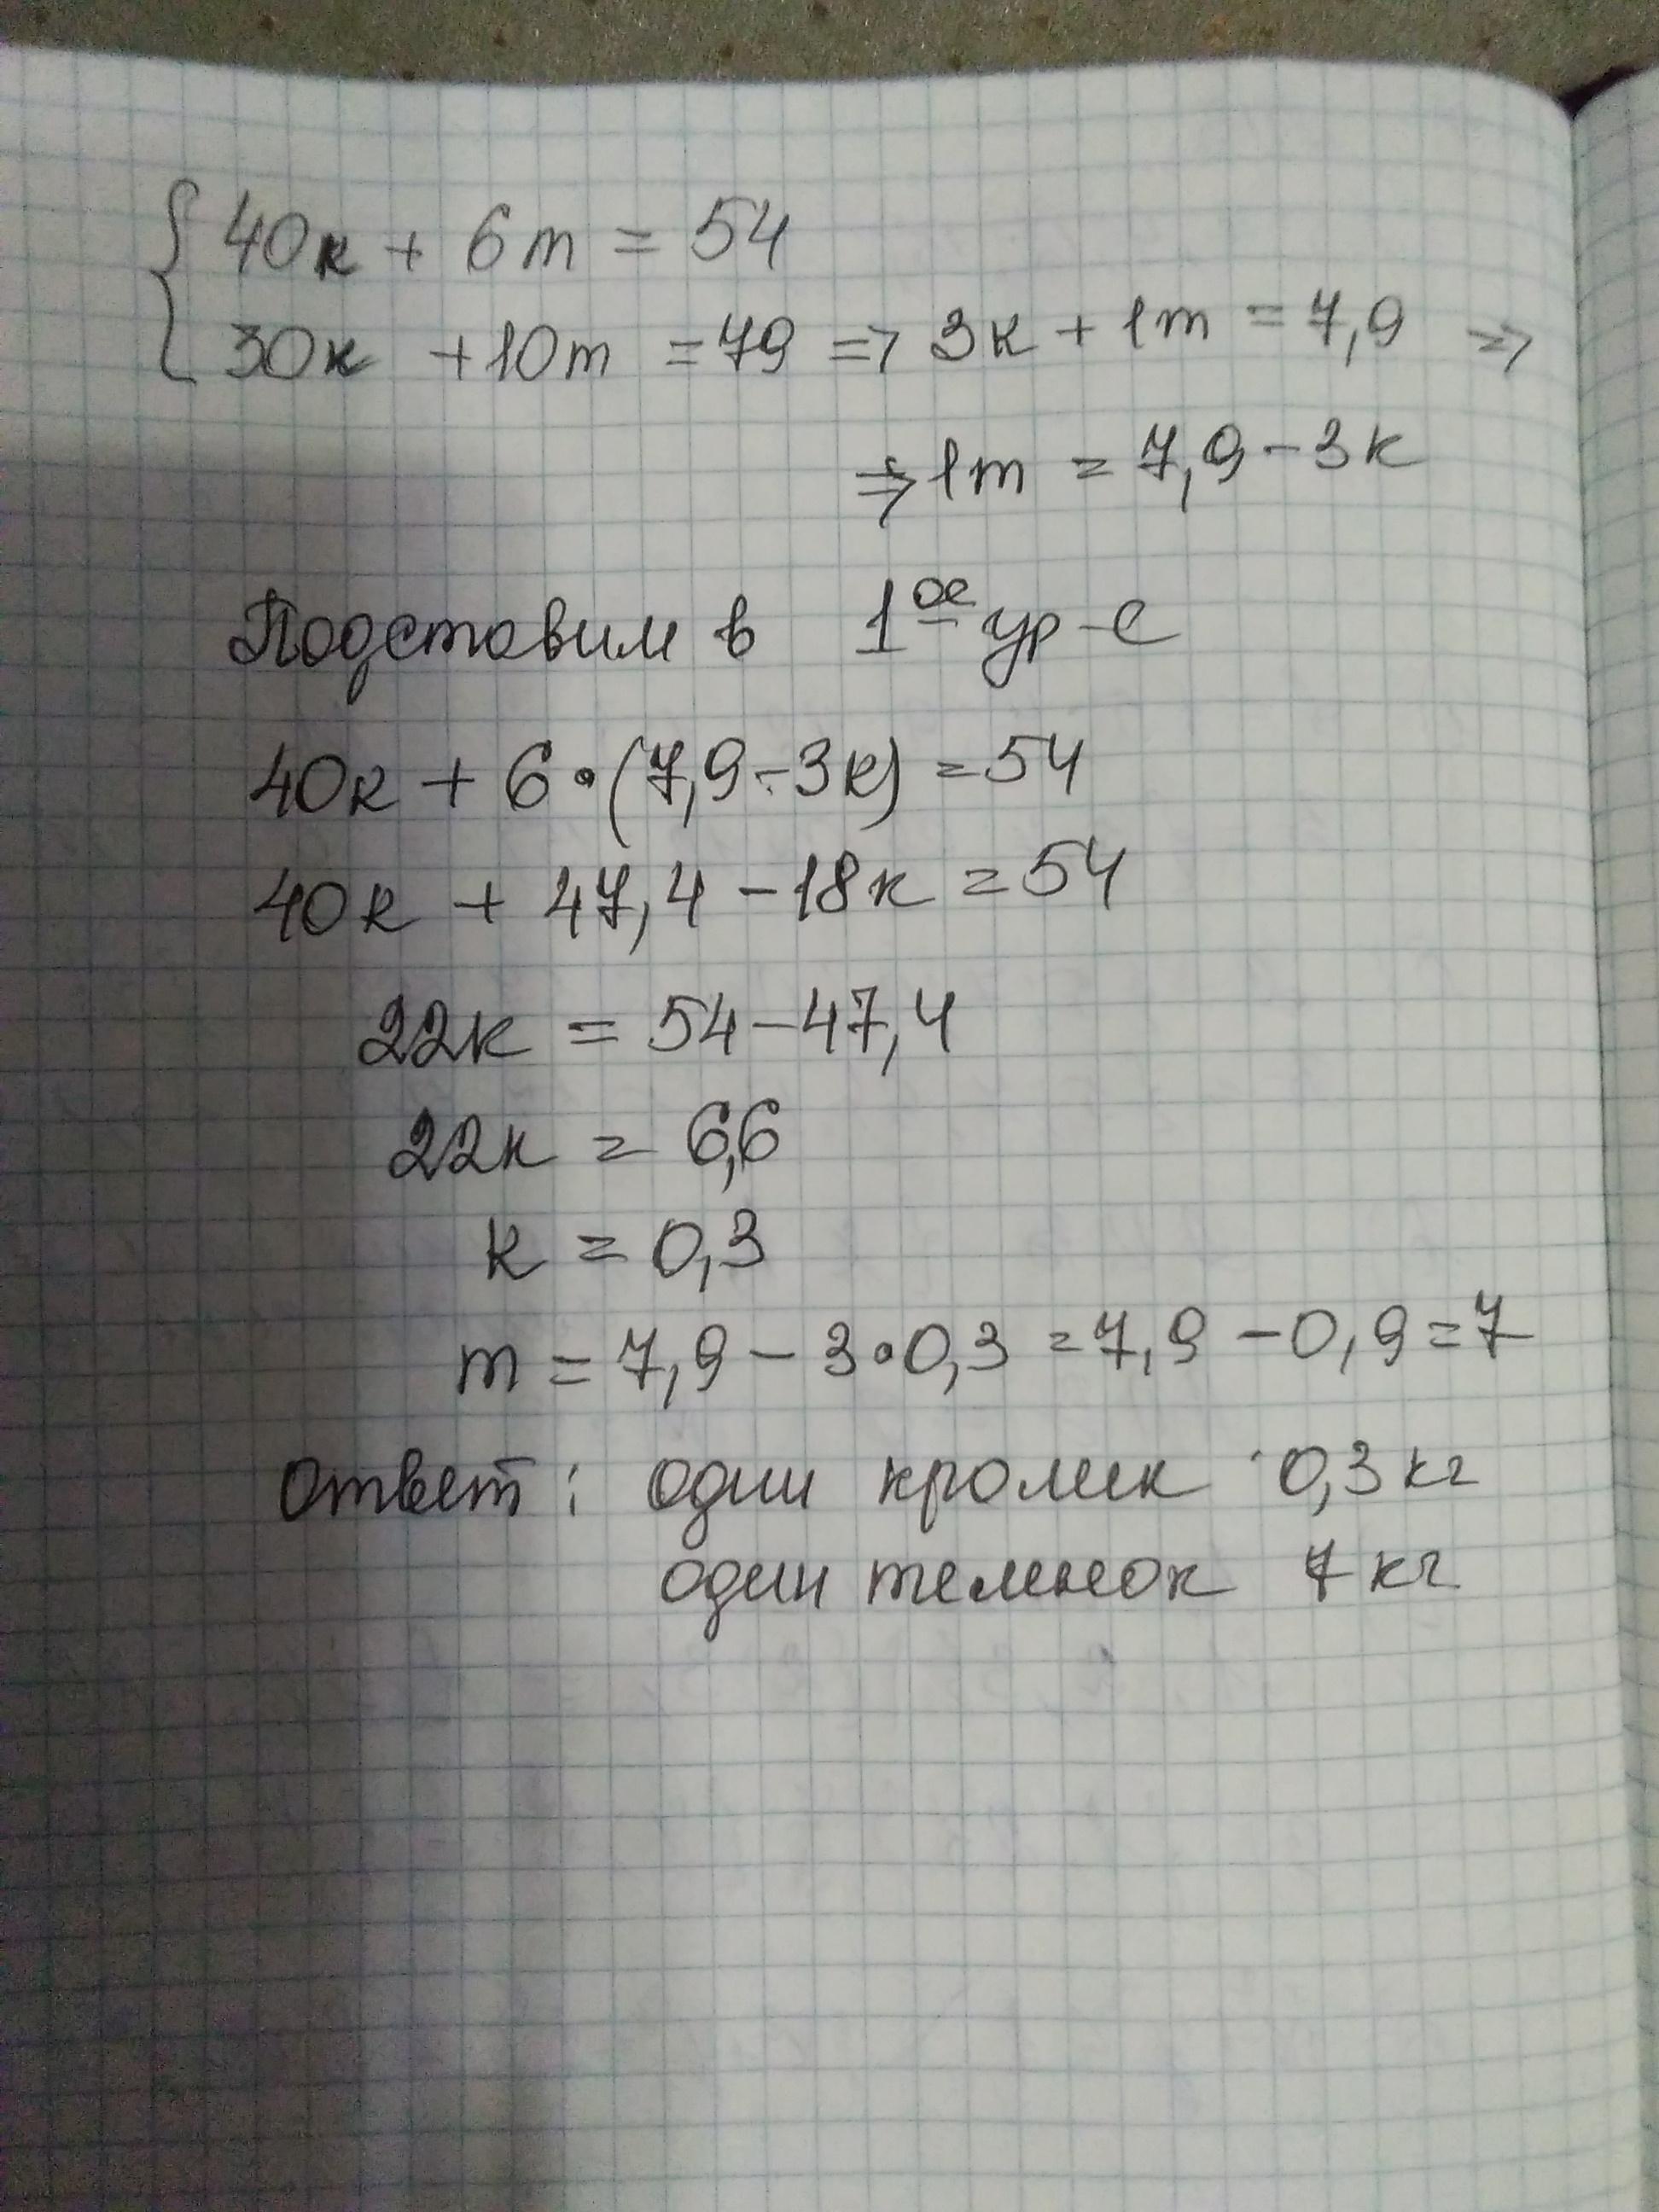 40к + 6т = 54
30к + 10т = 79 => 3к + 1т = 7,9 =>
=> 1т = 7,9 - 3к
Подставим в 1ое ур-е
40к + 6•(7,9 - 3к) = 54
40к + 47,4 - 18к = 54
22к = 54 - 47,4
22к = 6,6
к = 0,3
т = 7,9 - 3•0,3 = 7,9 - 0,9 = 7
Ответ: один кролик 0,3 кг
один теленок 7 кг